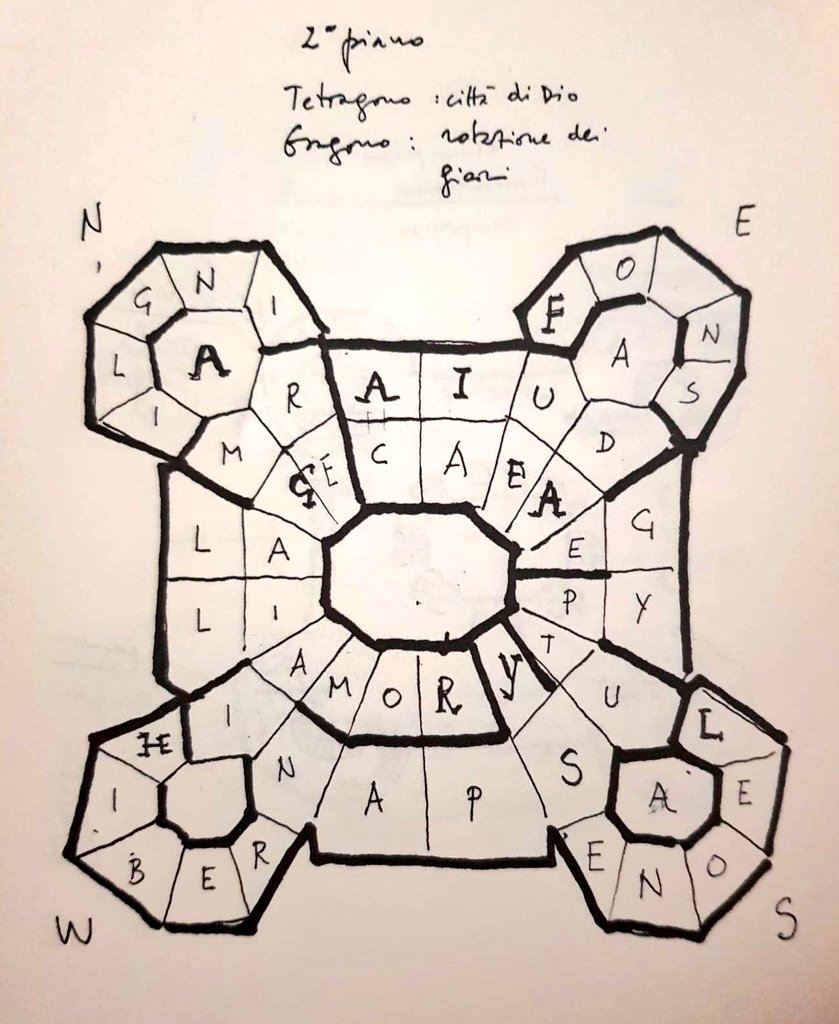 2° piano
Tetragono : città di Dio
Esagono : rotazione dei
giorni
N
E
G N I
F O
L A
A N
I R A I U S
M G E C A E A D
L A E G
L I P Y
A M O R Y T U
I
H L
I N A P S A E
B E R E N O
W
S